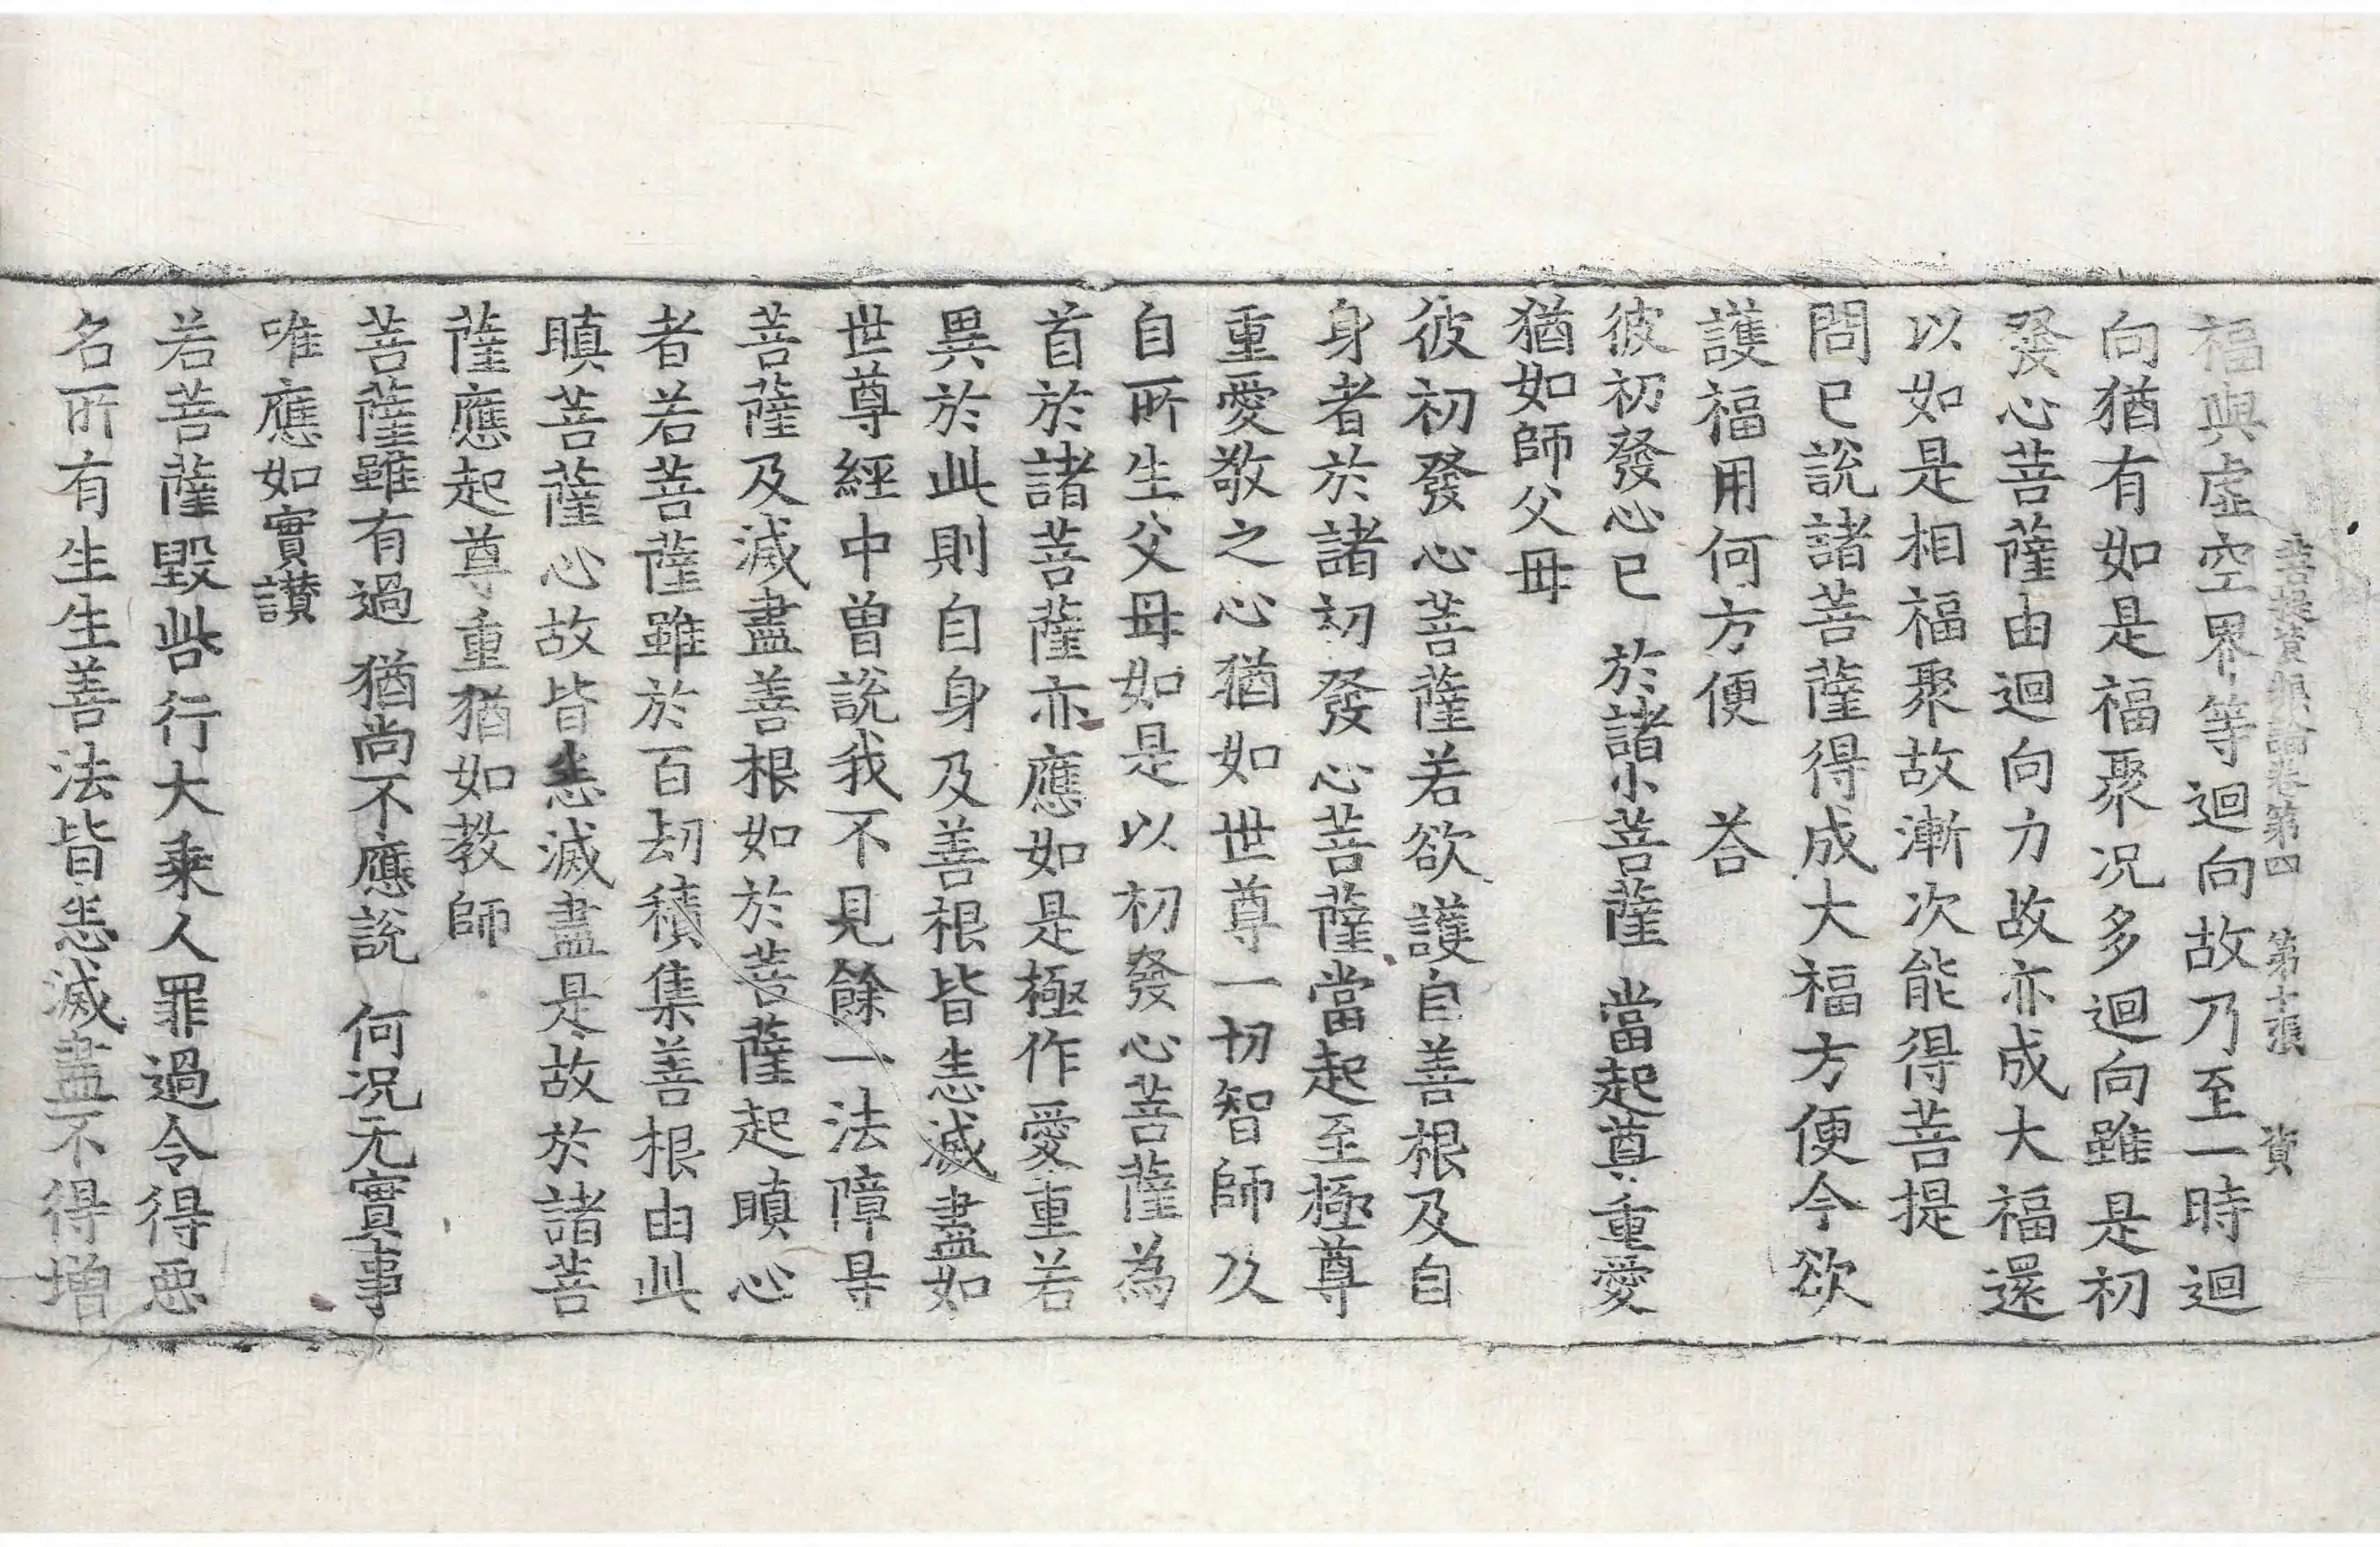 菩提資粮論卷第四　第十張　資
福與虛空界等迴向故乃至一時迴
向猶有如是福聚况多迴向雖是初
發心菩薩由迴向力故亦成大福還
以如是相福聚故漸次能得菩提
問已說諸菩薩得成大福方便今欲
護福用何方便　荅
彼初發心已　於諸小菩薩　當起尊重愛
猶如師父母
彼初發心菩薩若欲護自善根及自
身者於諸初發心菩薩當起至極尊
重愛敬之心猶如世尊一切智師及
自所生父母如是以初發心菩薩為
首於諸菩薩亦應如是極作愛重若
異於此則自身及善根皆悉滅盡如
世尊經中曾說我不見餘一法障㝵
菩薩及滅盡善根如於菩薩起瞋心
者若菩薩雖於百劫積集善根由此
瞋菩薩心故皆悉滅盡是故於諸菩
薩應起尊重猶如教師
菩薩雖有過　猶尚不應說　何况无實事
唯應如實讃
若菩薩毀呰行大乘人罪過令得惡
名所有生生善法皆悉滅盡不得增